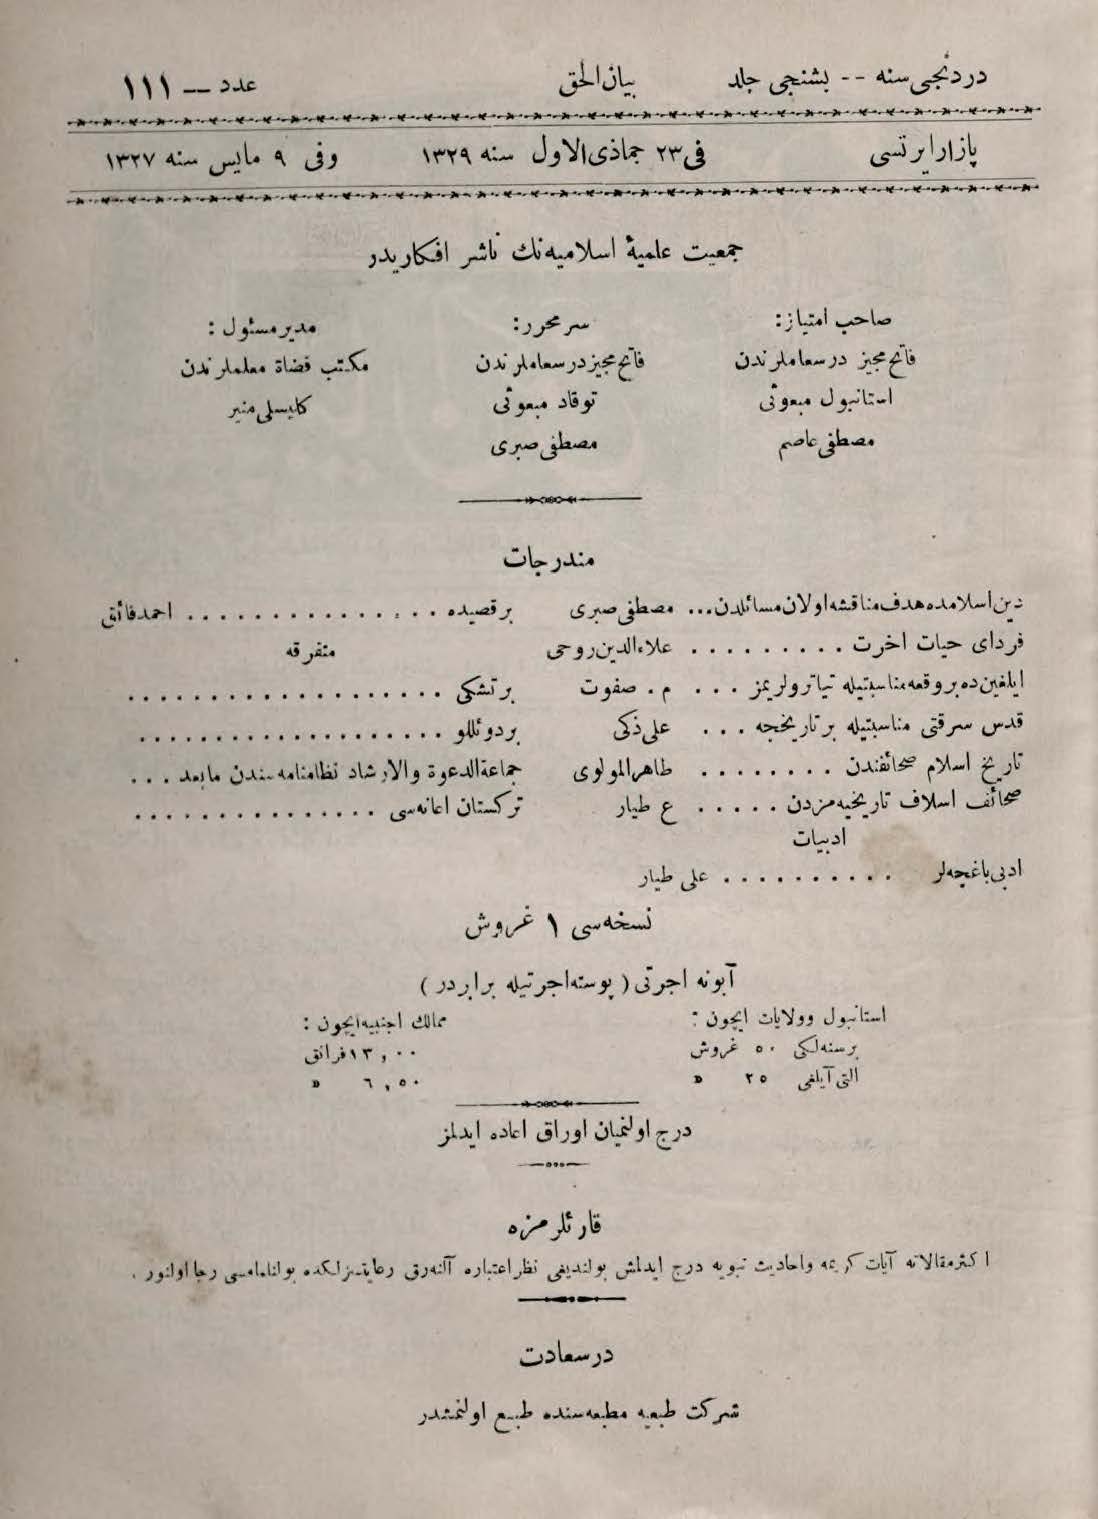 دردنجی سنه -- بشنجی جلد بیان الحق عدد — ١١١
پازار ایرتسی فی ٢٣ جماذی الاول سنه ١٣٢٩ وفی ٩ مایس سنه ١٣٢٧
جمعیت علمیهٔ اسلامیه نك ناشر افکاریدر
صاحب امتیاز:
فاتح مجیز درسعاملرندن
استانبول مبعوثی
مصطفی عاصم
سر محرر:
فاتح مجیز درسعاملرندن
توقاد مبعوثی
مصطفی صبری
مدیر مسئول:
مکتب قضاة معلملرندن
کلیسلی منیر
مندرجات
دین اسلامده هدف مناقشه اولان مسائلدن ... مصطفی صبری
فردای حیات اخرت ......... علاءالدین روحی
ایلغین ده بر وقعه مناسبتیله تیاترولریمز ... م . صفوت
قدس سرقتی مناسبتیله بر تاریخچه ... علی ذکی
تاریخ اسلام صحائفندن ........ طاهر المولوی
صحائف اسلاف تاریخیه مزدن ..... ع طیار
ادبیات
ادبی باغچه لر .......... علی طیار
بر قصیده .............. احمد فائق
متفرقه
بر تشکی ...................
بر دوئللو ...................
جماعة الدعوة والارشاد نظامنامه سندن مابعد ...
ترکستان اعانه سی ...............
نسخه سی ١ غروش
آبونه اجرتی ( پوسته اجرتیله برابردر )
استانبول وولایات ایچون :
بر سنه لکی ٥٠ غروش
التی آیلغی ٢٥ »
ممالك اجنبیه ایچون :
١٣,٠٠ فرانق
٦,٥٠ »
درج اولنمیان اوراق اعاده ایدلمز
قارئلرمزه
اکثر مقالاته آیات کریمه واحادیث نبویه درج ایدلمش بولندیغی نظر اعتباره آلنه رق رعایتسزلکده بولنلمامسی رجا اولنور .
درسعادت
شرکت طبعیه مطبعه سنده طبع اولنمشدر